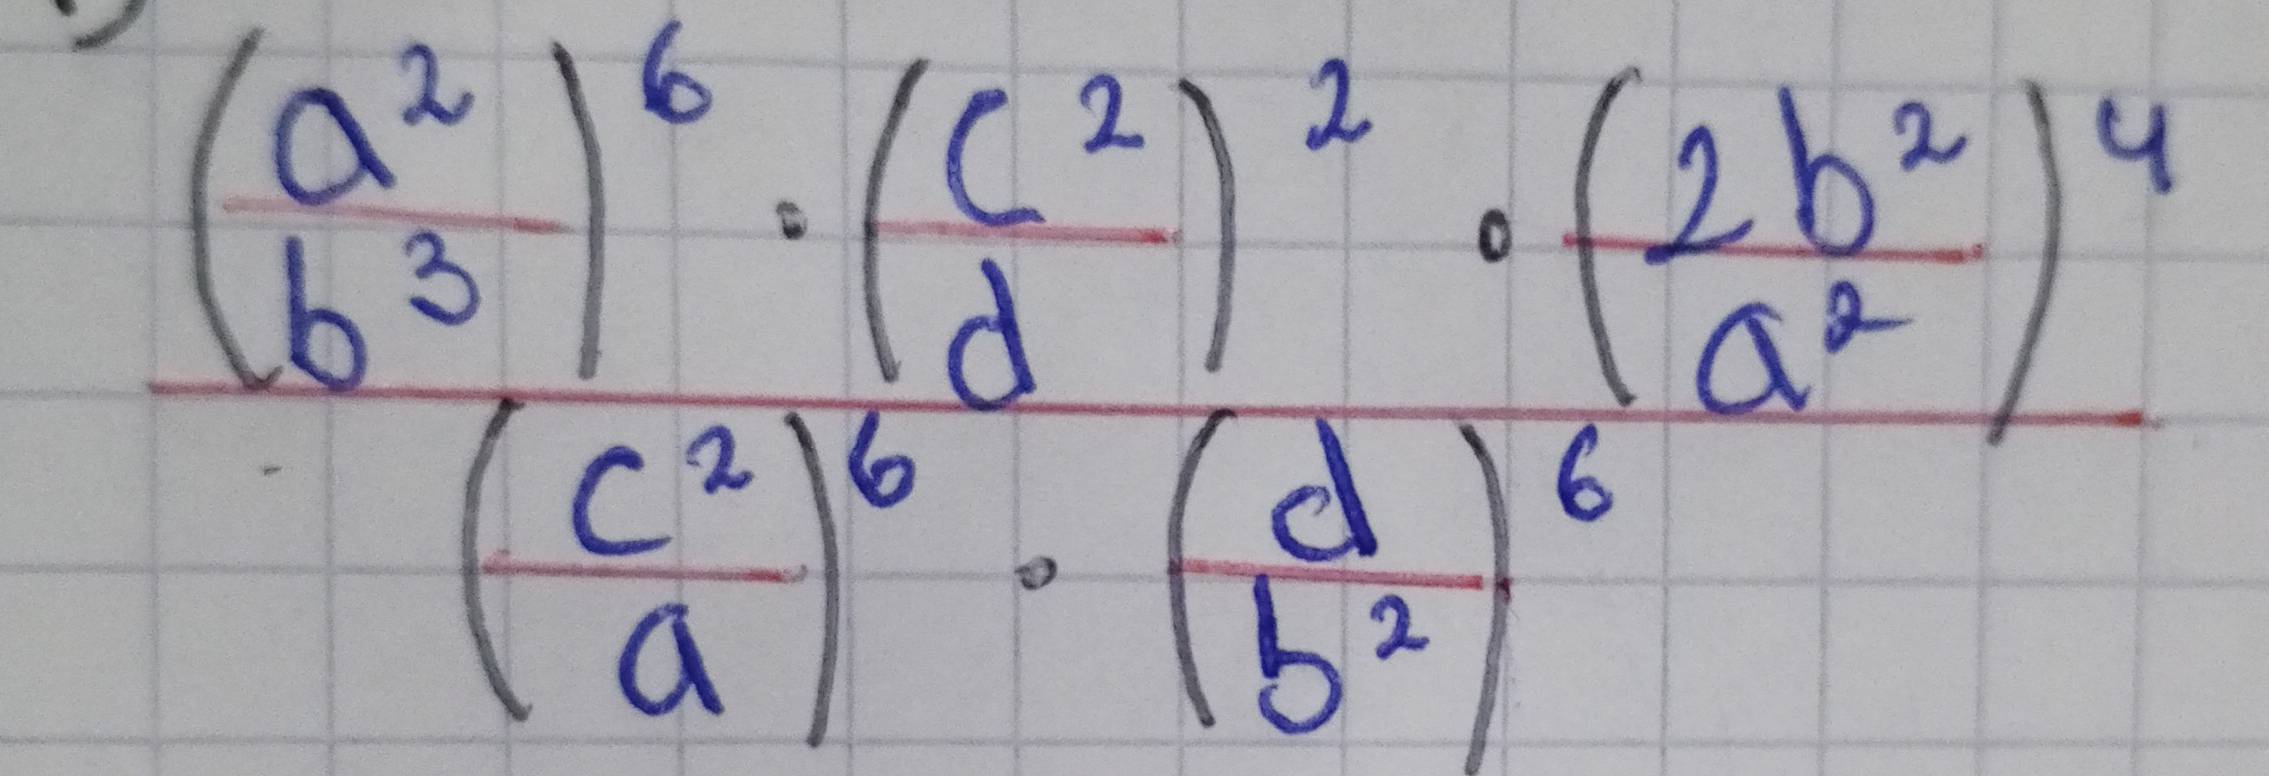 (a²/b³)⁶ · (c²/d)² · (2b²/a²)⁴
(c²/a)⁶ · (d/b²)⁶